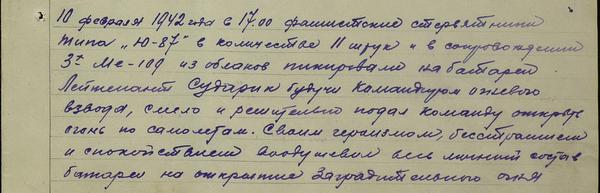 10 февраля 1942 года в 17.00 фашистские стервятники
типа „Ю-87" в количестве 11 штук и в сопровождении
3х Ме-109 из облаков пикировали на батарею.
Лейтенант Сударик будучи командиром огневого
взвода, смело и решительно подал команду открыть
огонь по самолетам. Своим героизмом, бесстрашием
и спокойствием воодушевил весь личный состав
батареи на открытие заградительного огня